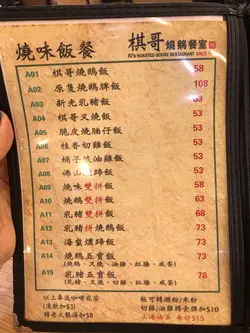 燒味飯餐
棋哥
燒鵝餐室
KI'S ROASTED GOOSE RESTAURANT
A01 棋哥燒鵝飯 58
A02 原隻燒鵝髀飯 108
A03 新光乳豬飯 63
A04 棋哥叉燒飯 53
A05 脆皮燒腩仔飯 53
A06 桂香切雞飯 53
A07 桶子豉油雞飯 53
A08 佛山燻蹄飯 53
A09 燒味雙拼飯 58
A10 燒鵝雙拼飯 63
A11 乳豬雙拼飯 68
A12 乳豬拼燒鵝飯 73
A13 海蜇燻蹄飯 63
A14 燒鵝五寶飯 73
(燒鵝、叉燒、油雞、紅腸、咸蛋)
A15 乳豬五寶飯 78
以上奉送咖啡或茶
(凍飲加$3)
轉老火靚湯加$8
飯可轉瀨粉/米粉
切雞/油雞轉左髀加$10
上湯油菜 每份$15